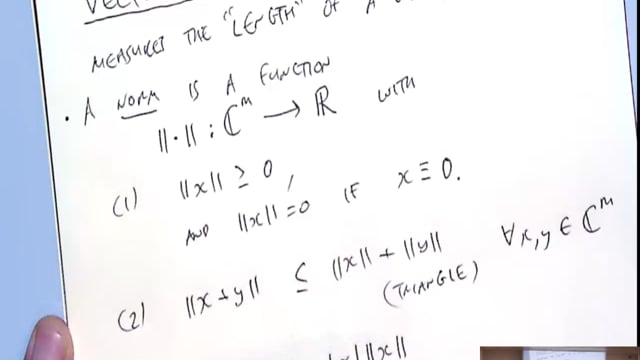 MEASURES THE "LENGTH" OF A
• A NORM IS A FUNCTION
||·|| : ℂ^m → ℝ WITH
(1) ||x|| ≥ 0,
AND ||x|| = 0 IF x ≡ 0.
(2) ||x + y|| ≤ ||x|| + ||y|| ∀x,y ∈ ℂ^m
(TRIANGLE)
||x||